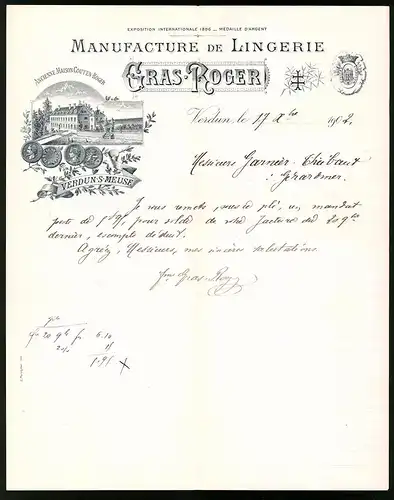 EXPOSITION INTERNATIONALE 1896 _ MÉDAILLE D'ARGENT
MANUFACTURE DE LINGERIE
ANCIENNE MAISON COUTEN-ROGER
GRAS-ROGER
Verdun, le 17 Xbre 1902.
VERDUN-S-MEUSE
Messieurs Garnier-Thiebaut
Gérardmer.
Je vous remets, sous ce pli, un mandat
poste de pour solde de votre facture du 20 9bre
dernier, escompte déduit.
Agréez, Messieurs, mes sincères salutations.
Gras-Roger
20 9bre f.